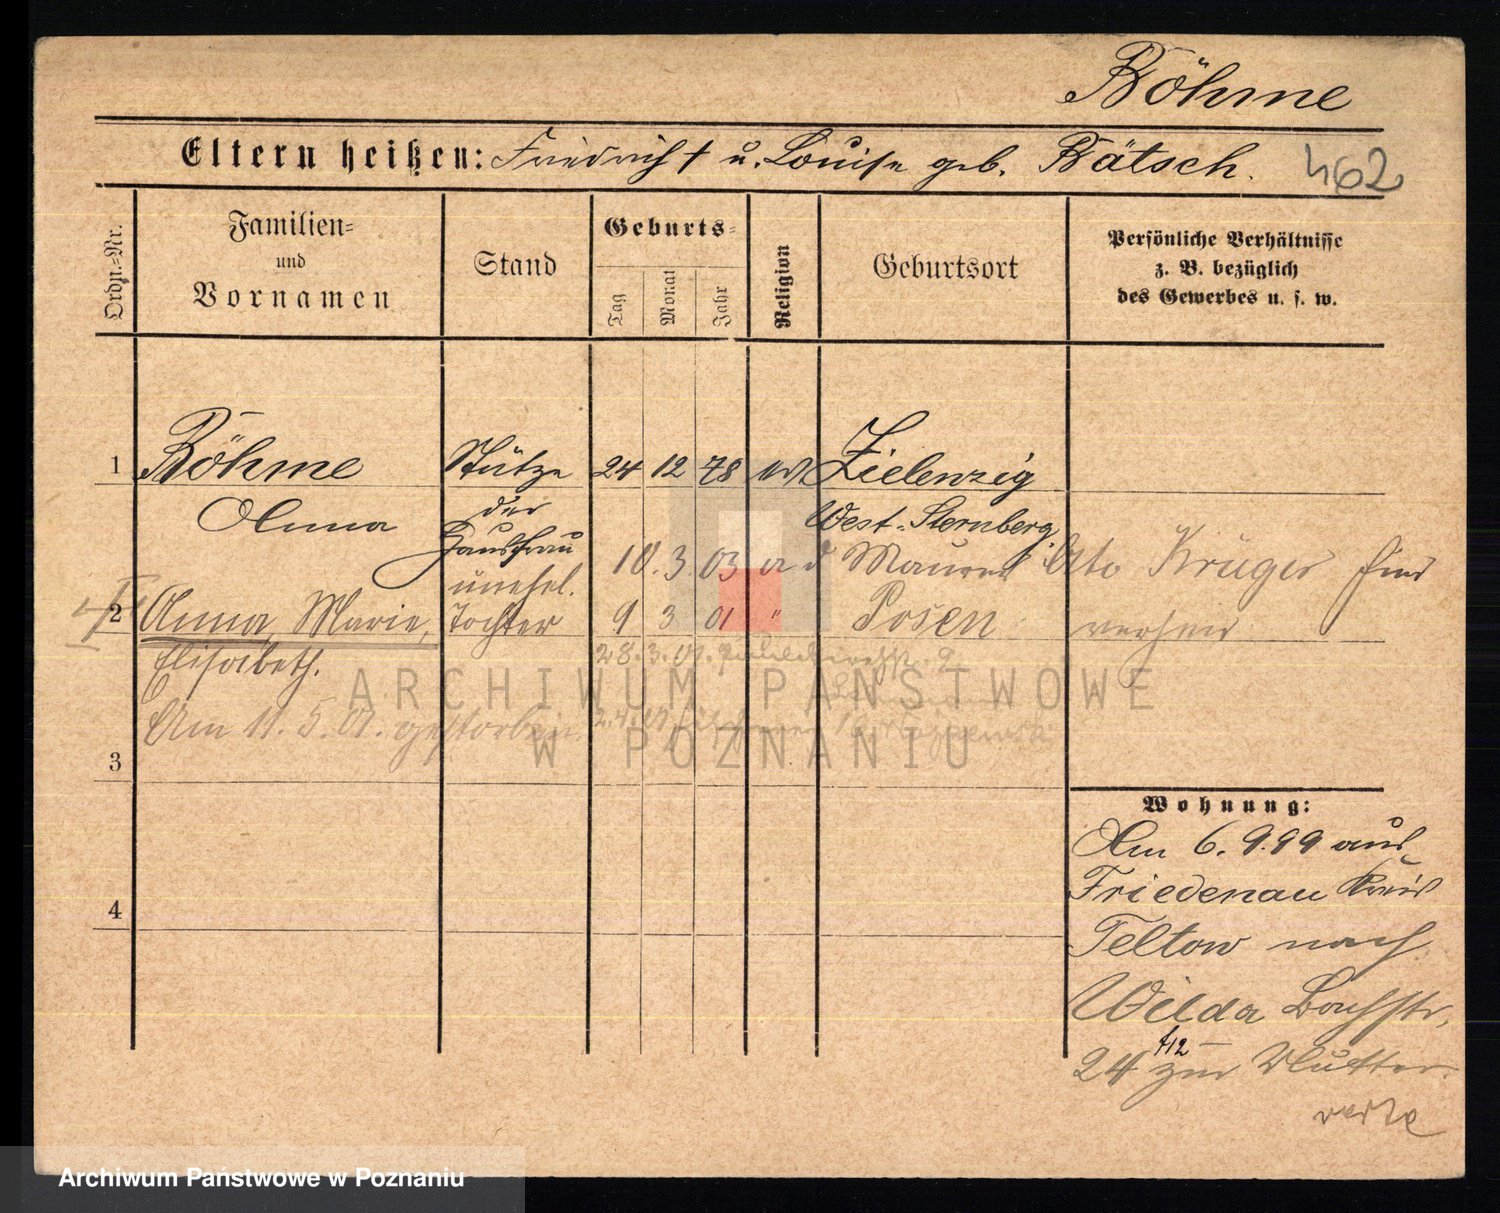 Böhme
Eltern heißen: Friedrich † u. Louise geb. Bätsch.
462
Ordn.-Nr.
Familien-
und
Vornamen
Stand
Geburts-
Tag
Monat
Jahr
Religion
Geburtsort
Persönliche Verhältnisse
z. B. bezüglich
des Gewerbes u. s. w.
1 Böhme Stütze 24 12 78 Zielenzig
Anna der West-Sternberg
Hausfrau
10. 3. 03 Maurer Otto Krüger
unehel.
2 Anna Marie, Tochter 9 3 01 " Posen
Elisabeth. 28. 3. 01.
Am 11. 5. 01. gestorben.
3
4
Wohnung:
Am 6. 9. 99 aus
Friedenau Kreis
Teltow nach
Wilda Bachstr.
24 zur Mutter
ARCHIWUM PAŃSTWOWE
W POZNANIU
Archiwum Państwowe w Poznaniu